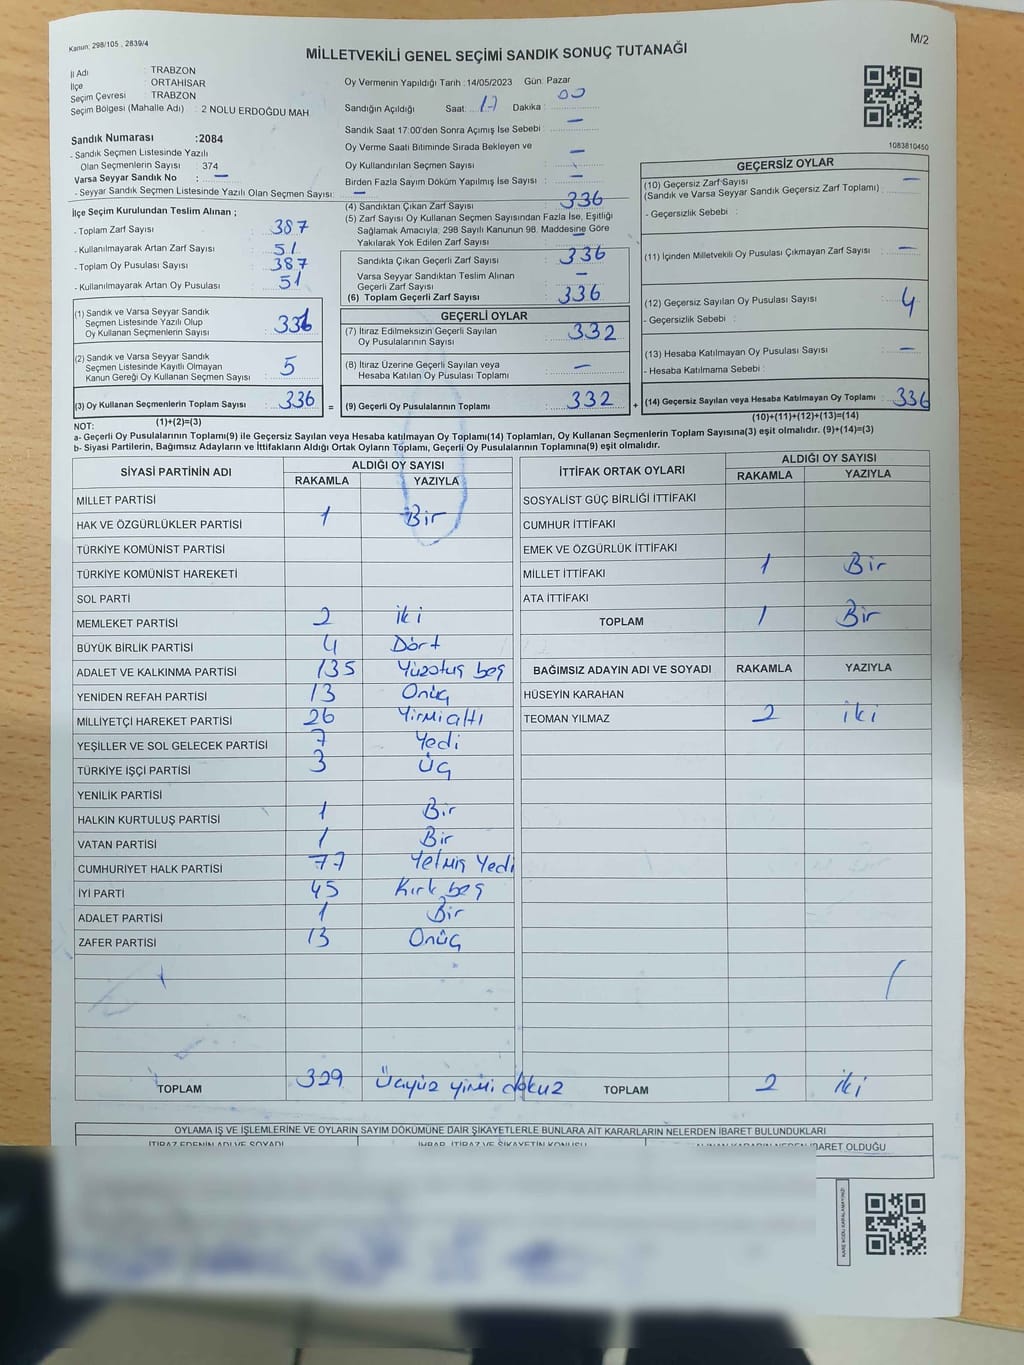 Kanun, 298/105 , 2839/4
M/2
MİLLETVEKİLİ GENEL SEÇİMİ SANDIK SONUÇ TUTANAĞI
İl Adı : TRABZON
İlçe : ORTAHİSAR
Seçim Çevresi : TRABZON
Seçim Bölgesi (Mahalle Adı) : 2 NOLU ERDOĞDU MAH
Sandık Numarası :2084
- Sandık Seçmen Listesinde Yazılı
Olan Seçmenlerin Sayısı : 374
Varsa Seyyar Sandık No : —
- Seyyar Sandık Seçmen Listesinde Yazılı Olan Seçmen Sayısı: —
İlçe Seçim Kurulundan Teslim Alınan ;
- Toplam Zarf Sayısı : 387
- Kullanılmayarak Artan Zarf Sayısı : 51
- Toplam Oy Pusulası Sayısı : 387
- Kullanılmayarak Artan Oy Pusulası : 51
(1) Sandık ve Varsa Seyyar Sandık
Seçmen Listesinde Yazılı Olup
Oy Kullanan Seçmenlerin Sayısı :
(2) Sandık ve Varsa Seyyar Sandık
Seçmen Listesinde Kayıtlı Olmayan
Kanun Gereği Oy Kullanan Seçmen Sayısı : 5
(3) Oy Kullanan Seçmenlerin Toplam Sayısı : 336
Oy Vermenin Yapıldığı Tarih :14/05/2023 Gün: Pazar
Sandığın Açıldığı Saat: 17 Dakika : 00
Sandık Saat 17:00'den Sonra Açımış İse Sebebi : —
Oy Verme Saati Bitiminde Sırada Bekleyen ve
Oy Kullandırılan Seçmen Sayısı : —
Birden Fazla Sayım Döküm Yapılmış İse Sayısı : —
(4) Sandıktan Çıkan Zarf Sayısı : 336
(5) Zarf Sayısı Oy Kullanan Seçmen Sayısından Fazla İse, Eşitliği
Sağlamak Amacıyla, 298 Sayılı Kanunun 98. Maddesine Göre
Yakılarak Yok Edilen Zarf Sayısı : —
Sandıkta Çıkan Geçerli Zarf Sayısı : 336
Varsa Seyyar Sandıktan Teslim Alınan
Geçerli Zarf Sayısı : —
(6) Toplam Geçerli Zarf Sayısı : 336
GEÇERLİ OYLAR
(7) İtiraz Edilmeksizin Geçerli Sayılan
Oy Pusulalarının Sayısı : 332
(8) İtiraz Üzerine Geçerli Sayılan veya
Hesaba Katılan Oy Pusulası Toplamı : —
= (9) Geçerli Oy Pusulalarının Toplamı : 332
1083810450
GEÇERSİZ OYLAR
(10) Geçersiz Zarf Sayısı : —
(Sandık ve Varsa Seyyar Sandık Geçersiz Zarf Toplamı)
- Geçersizlik Sebebi :
(11) İçinden Milletvekili Oy Pusulası Çıkmayan Zarf Sayısı : —
(12) Geçersiz Sayılan Oy Pusulası Sayısı : 4
- Geçersizlik Sebebi :
(13) Hesaba Katılmayan Oy Pusulası Sayısı : —
- Hesaba Katılmama Sebebi :
+ (14) Geçersiz Sayılan veya Hesaba Katılmayan Oy Toplamı : 336
NOT: (1)+(2)=(3) (10)+(11)+(12)+(13)=(14)
a- Geçerli Oy Pusulalarının Toplamı(9) ile Geçersiz Sayılan veya Hesaba katılmayan Oy Toplamı(14) Toplamları, Oy Kullanan Seçmenlerin Toplam Sayısına(3) eşit olmalıdır. (9)+(14)=(3)
b- Siyasi Partilerin, Bağımsız Adayların ve İttifakların Aldığı Ortak Oyların Toplamı, Geçerli Oy Pusulalarının Toplamına(9) eşit olmalıdır.
SİYASİ PARTİNİN ADI ALDIĞI OY SAYISI
RAKAMLA YAZIYLA
MİLLET PARTİSİ
HAK VE ÖZGÜRLÜKLER PARTİSİ 1 Bir
TÜRKİYE KOMÜNİST PARTİSİ
TÜRKİYE KOMÜNİST HAREKETİ
SOL PARTİ
MEMLEKET PARTİSİ 2 iki
BÜYÜK BİRLİK PARTİSİ 4 Dört
ADALET VE KALKINMA PARTİSİ 135 Yüzotuz beş
YENİDEN REFAH PARTİSİ 13 Onüç
MİLLİYETÇİ HAREKET PARTİSİ 26 Yirmialtı
YEŞİLLER VE SOL GELECEK PARTİSİ 7 Yedi
TÜRKİYE İŞÇİ PARTİSİ 3 Üç
YENİLİK PARTİSİ
HALKIN KURTULUŞ PARTİSİ 1 Bir
VATAN PARTİSİ 1 Bir
CUMHURİYET HALK PARTİSİ 77 Yetmiş Yedi
İYİ PARTİ 45 Kırk beş
ADALET PARTİSİ 1 Bir
ZAFER PARTİSİ 13 Onüç
TOPLAM 329 Üçyüz yirmi dokuz
İTTİFAK ORTAK OYLARI ALDIĞI OY SAYISI
RAKAMLA YAZIYLA
SOSYALİST GÜÇ BİRLİĞİ İTTİFAKI
CUMHUR İTTİFAKI
EMEK VE ÖZGÜRLÜK İTTİFAKI
MİLLET İTTİFAKI 1 Bir
ATA İTTİFAKI
TOPLAM 1 Bir
BAĞIMSIZ ADAYIN ADI VE SOYADI RAKAMLA YAZIYLA
HÜSEYİN KARAHAN
TEOMAN YILMAZ 2 iki
TOPLAM 2 iki
OYLAMA İŞ VE İŞLEMLERİNE VE OYLARIN SAYIM DÖKÜMÜNE DAİR ŞİKAYETLERLE BUNLARA AİT KARARLARIN NELERDEN İBARET BULUNDUKLARI
İTİRAZ EDENİN ADI VE SOYADI İHBAR, İTİRAZ VE ŞİKAYETİN KONUSU ALINAN KARARIN NEDEN İBARET OLDUĞU
KARE KODU KARALAMAYINIZ!